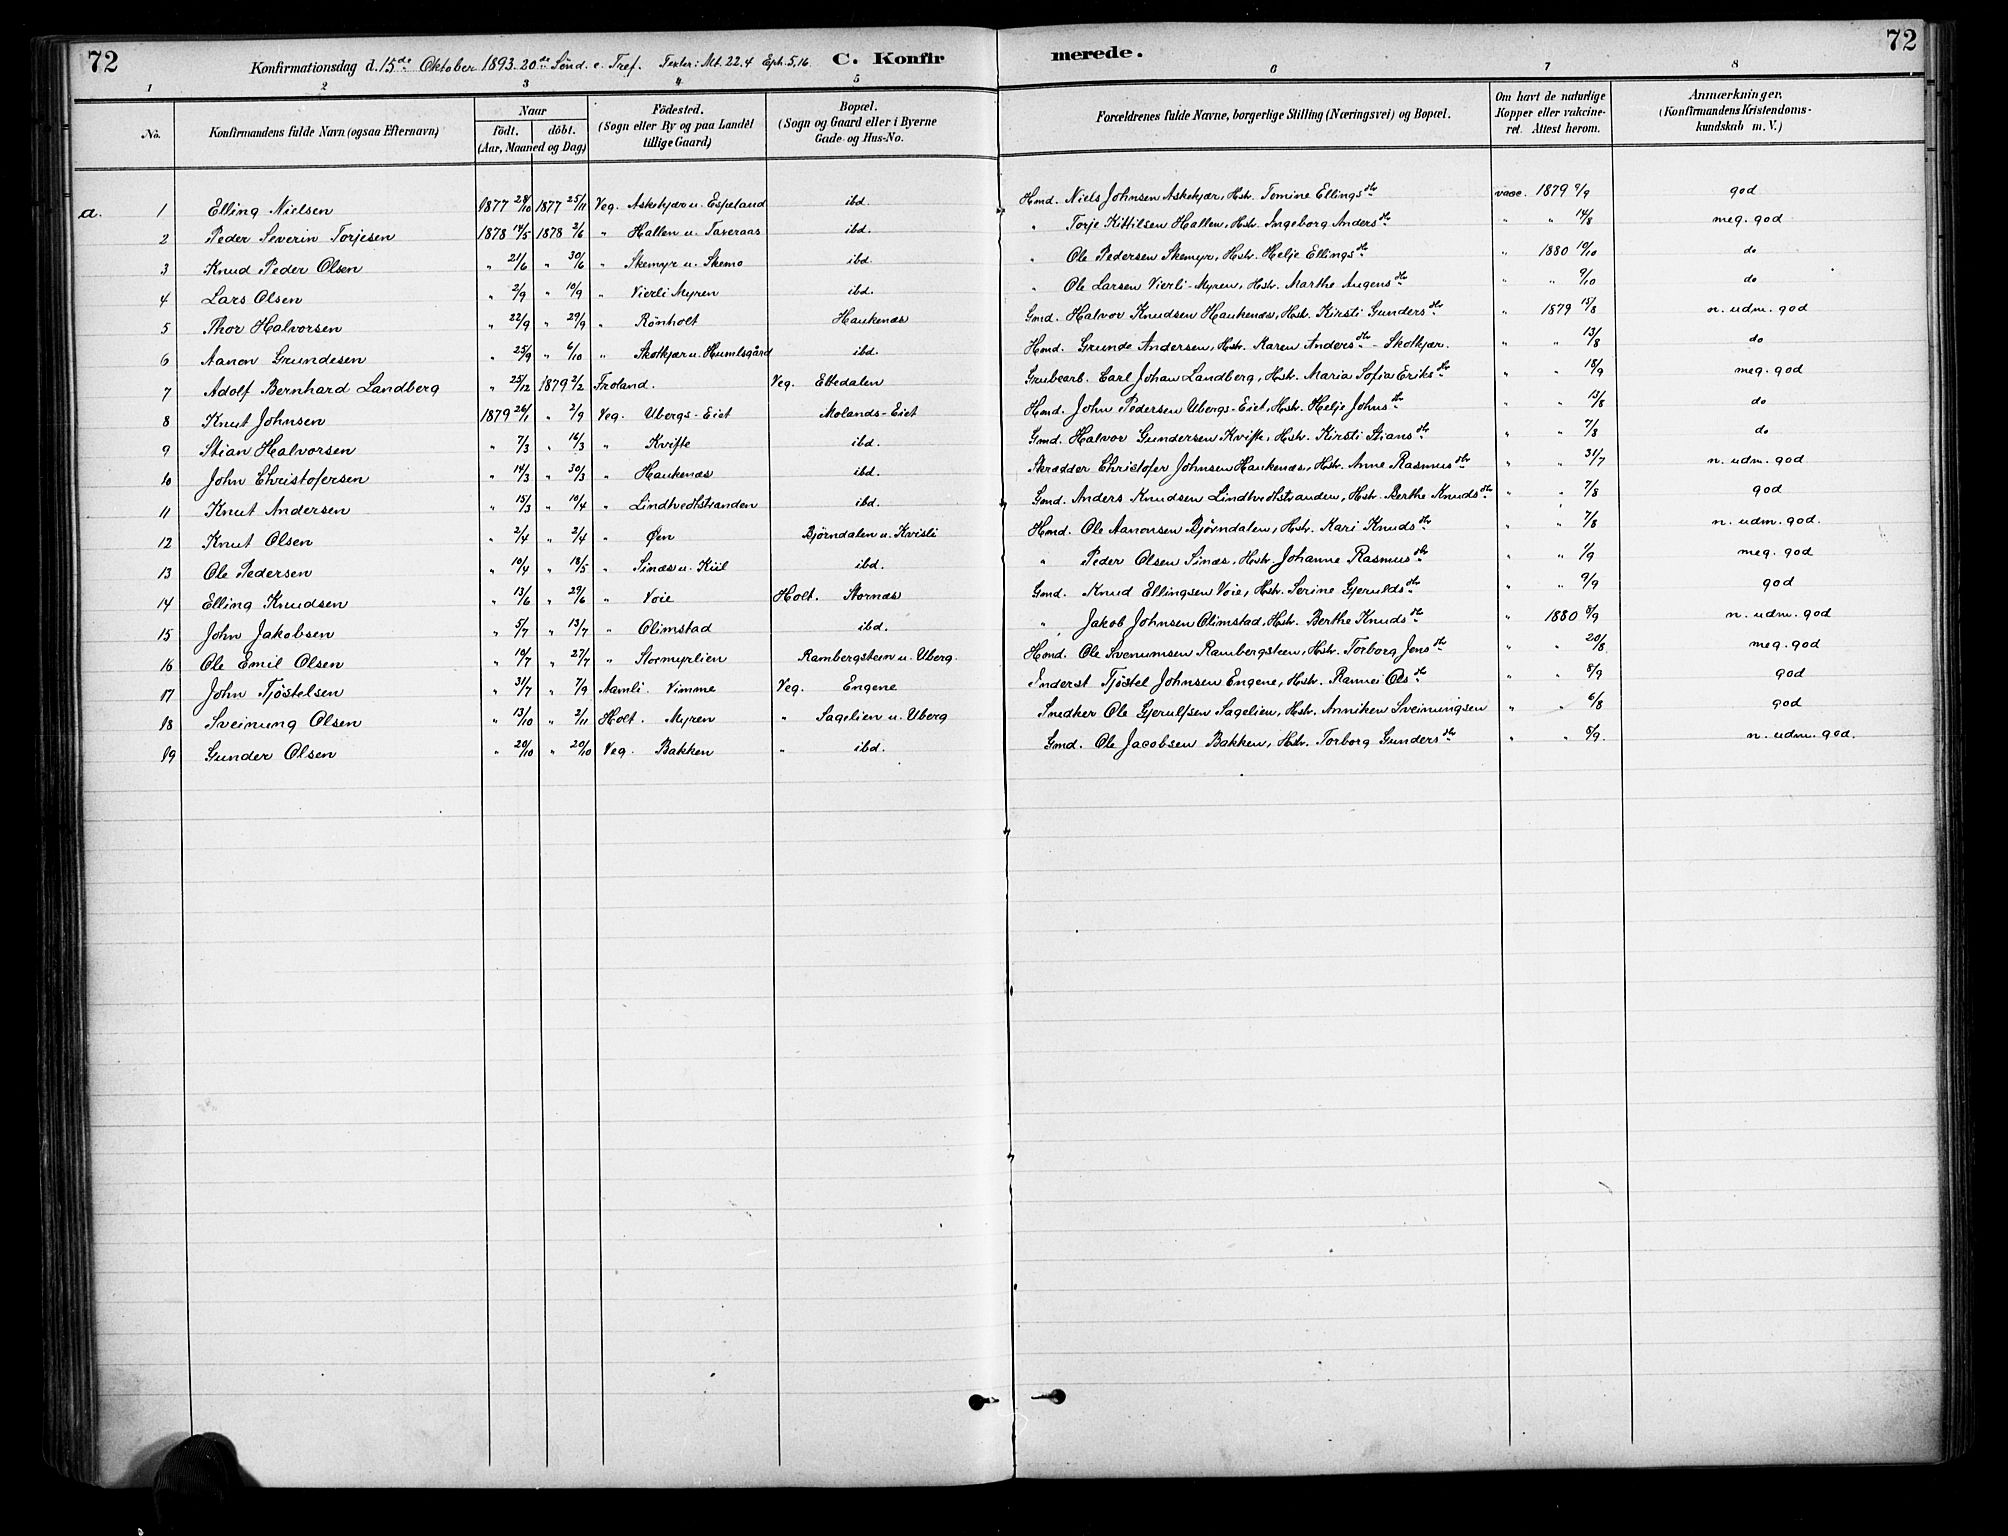 72 Konfirmationsdag d. 15de Oktober 1893. 20de Sønd. e. Tref. Texter: Mt. 22.4 Eph. 5,16. C. Konfirmerede. 72
1 2 3 4 5 6 7 8
No. Konfirmandens fulde Navn (ogsaa Efternavn) Naar født. døbt. (Aar, Maaned og Dag) Fødested. (Sogn eller By og paa Landet tillige Gaard) Bopæl. (Sogn og Gaard eller i Byerne Gade- og Hus-No. Forældrenes fulde Navne, borgerlige Stilling (Næringsvei) og Bopæl. Om havt de naturlige Kopper eller vakcineret. Attest herom. Anmærkninger. (Konfirmandens Kristendomskundskab m. V.)
a. 1 Elling Nielsen 1877 28/10 1877 25/11 Veg. Askekjær u. Espeland ibd. Hmd. Niels Johnsen Askekjær, Hstr. Tomine Ellings dtr vacc. 1879 9/9 god
2 Peder Severin Torjesen 1878 14/5 1878 2/6 " Hallen u. Taxeraas ibd. " Torje Kittilsen Hallen, Hstr. Ingeborg Anders dtr " " 14/8 meg. god
3 Knud Peder Olsen " 21/6 " 30/6 " Skemyr u. Skemo ibd. " Ole Pedersen Skemyr, Hstr. Helje Ellings dtr " 1880 19/10 do
4 Lars Olsen " 2/9 " 10/9 " Vierli Myren ibd. " Ole Larsen Vierli-Myren, Hstr. Marthe Augens dtr " " 9/10 do
5 Thor Halvorsen " 22/9 " 29/9 " Rønholt Haukenæs Gmd. Halvor Knudsen Haukenæs, Hstr. Kirsti Gunders dtr " 1879 15/8 n. udm. god
6 Aanon Grundesen " 25/9 " 6/10 " Skotkjær u. Humlsgård ibd. Hmd. Grunde Andersen, Hstr. Karen Anders dtr - Skotkjær. " " 13/8 do
7 Adolf Bernhard Landberg " 25/12 1879 2/2 Froland. Veg. Ettedalen Grubearb. Carl Johan Landberg, Hstr. Maria Sofia Eriks dtr " " 18/9 meg. god
8 Knut Johnsen 1879 26/1 " 2/9 Veg. Ubergs-Eiet Molands-Eiet Hmd. John Pedersen Ubergs-Eiet, Hstr. Helje Johns dtr " " 13/8 do
9 Stian Halvorsen " 7/3 " 16/3 " Kvifte ibd. Gmd. Halvor Gundersen Kvifte, Hstr. Kirsti Stians dtr " " 7/8 do
10 John Christofersen " 14/3 " 30/3 " Haukenæs ibd. Skrædder Christofer Johnsen Haukenæs, Hstr. Anne Rasmus dtr " " 31/7 n. udm. god
11 Knut Andersen " 15/3 " 10/4 " Lindtvedtstranden ibd. Gmd. Anders Knudsen Lindtvedtstranden, Hstr. Berthe Knuds dtr " " 7/8 god
12 Knut Olsen " 2/4 " 2/4 " Øen Bjørndalen u. Kvisli Hmd. Ole Aanonsen Bjørndalen, Hstr. Kari Knuds dtr " " 7/8 n. udm. god.
13 Ole Pedersen " 10/4 " 18/5 " Sinæs u. Kiil ibd. " Peder Olsen Sinæs, Hstr. Johanne Rasmus dtr " " 1/9 meg. god
14 Elling Knudsen " 13/6 " 29/6 " Voie Holt. Stornæs Gmd. Knud Ellingsen Voie, Hstr. Serine Gjerulds dtr " " 9/9 god
15 John Jakobsen " 5/7 " 13/7 " Olimstad ibd. " Jakob Johnsen Olimstad, Hstr. Berthe Knuds dtr " 1880 8/9 n. udm. god
16 Ole Emil Olsen " 10/7 " 27/7 " Stormyrlien Rambergsteen u. Uberg. Hmd. Ole Svenumsen Rambergsteen, Hstr. Torborg Jens dtr " " 20/8 meg. god
17 John Tjøstelsen " 31/7 " 7/9 Aamli. Vimme Veg. Engene Inderst Tjøstel Johnsen Engene, Hstr. Rannei Ols dtr " " 8/9 god
18 Sveinung Olsen " 13/10 " 2/11 Holt. Myren " Sagelien u. Uberg Snedker Ole Gjerulfsen Sagelien, Hstr. Anniken Sveinungsen " " 6/8 god
19 Gunder Olsen " 20/10 " 20/10 Veg. Bakken " ibd. Gmd. Ole Jacobsen Bakken, Hstr. Torborg Gunders dtr " " 8/9. n. udm. god.